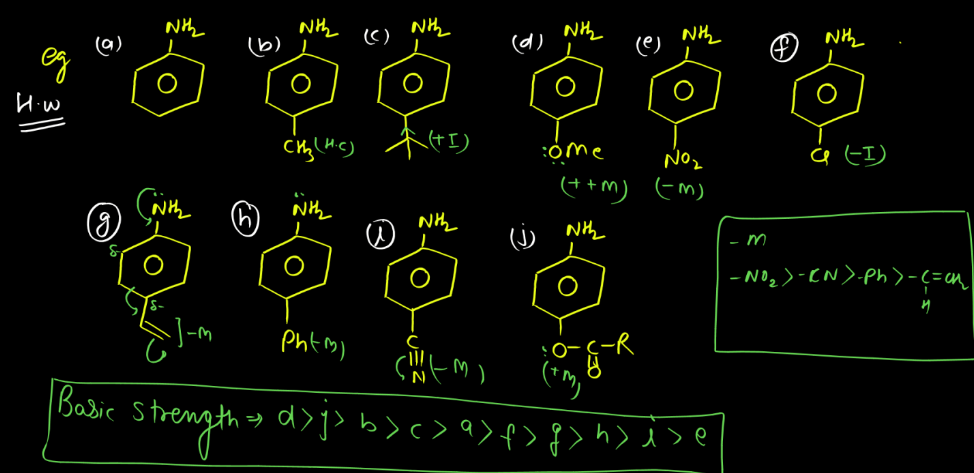 eg
H.W
(a) NH₂
(b) NH₂
CH₃ (H.C)
(c) NH₂
(+I)
(d) NH₂
:OMe
(++m)
(e) NH₂
NO₂
(-m)
(f) NH₂
Cl (-I)
(g) NH₂
δ-
δ-
]-m
(h) NH₂
Ph(-m)
(i) NH₂
C
N (-m)
(j) NH₂
:O-C-R
O
(+m)
-m
-NO₂>-CN>-Ph>-C=CH₂
H
Basic strength ⇒ d>j>b>c>a>f>g>h>i>e